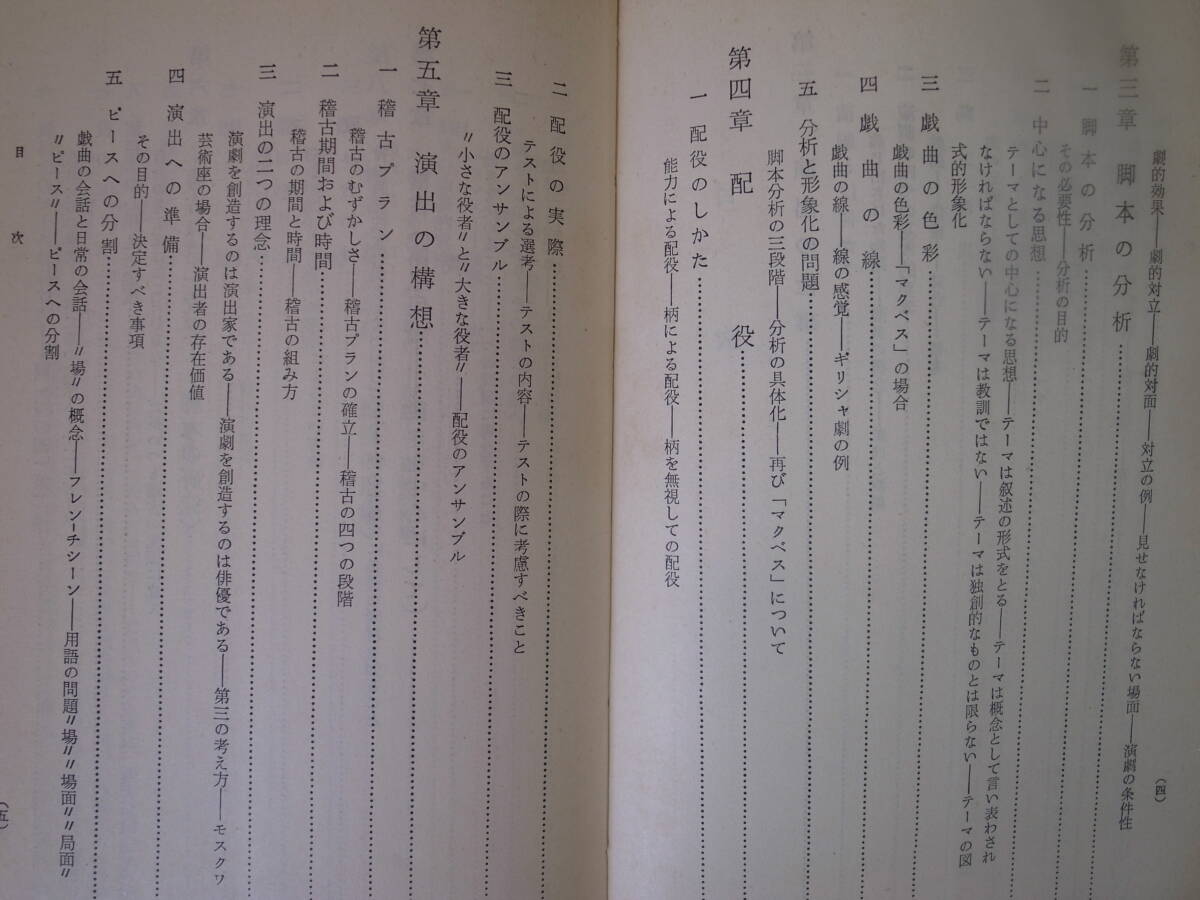 劇的効果――劇的対立――劇的対面――対立の例――見せなければならない場面――演劇の条件性
第三章 脚本の分析
一 脚本の分析
その必要性――分析の目的
二 中心になる思想
テーマとしての中心になる思想――テーマは叙述の形式をとる――テーマは概念として言い表わされ
なければならない――テーマは教訓ではない――テーマは独創的なものとは限らない――テーマの図
式的形象化
三 戯曲の色彩
戯曲の色彩――「マクベス」の場合
四 戯曲の線
戯曲の線――線の感覚――ギリシャ劇の例
五 分析と形象化の問題
脚本分析の三段階――分析の具体化――再び「マクベス」について
第四章 配役
一 配役のしかた
能力による配役――柄による配役――柄を無視しての配役
(四)
二 配役の実際
テストによる選考――テストの内容――テストの際に考慮すべきこと
三 配役のアンサンブル
〃小さな役者〃と〃大きな役者〃――配役のアンサンブル
第五章 演出の構想
一 稽古プラン
稽古のむずかしさ――稽古プランの確立――稽古の四つの段階
二 稽古期間および時間
稽古の期間と時間――稽古の組み方
三 演出の二つの理念
演劇を創造するのは演出家である――演劇を創造するのは俳優である――第三の考え方――モスクワ
芸術座の場合――演出者の存在価値
四 演出への準備
その目的――決定すべき事項
五 ピースへの分割
戯曲の会話と日常の会話――〃場〃の概念――フレンチシーン――用語の問題〃場〃〃場面〃〃局面〃
〃ピース〃――ピースへの分割
目次
(五)